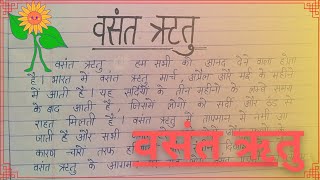 वसंत ऋतु
वसंत ऋतु हम सभी को आनंद देने वाला होता
है। भारत में वसंत ऋतु मार्च, अप्रैल और मई के महीने
में आती है। यह सर्दियों के तीन महीनों के लम्बे समय
के बाद आती है, जिसमें लोगों को सर्दी और ठंड से
राहत मिलती है। वसंत ऋतु में तापमान में नमी आ
जाती है और सभी
कारण चारो तरफ
वसंत ऋतु के आगमन
वसंत ऋतु